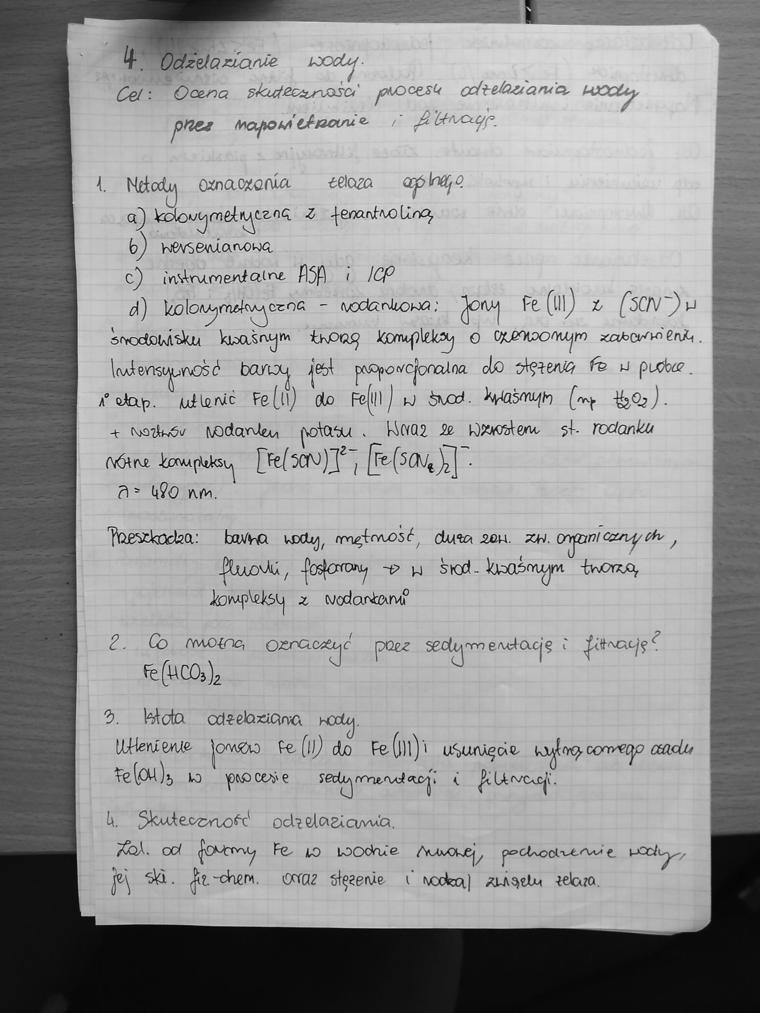 4. Odżelazianie wody.
Cel: Ocena skuteczności procesu odżelaziania wody
przez napowietrzanie i filtrację.
1. Metody oznaczania żelaza ogólnego
a) kolorymetryczna z fenantroliną
b) wersenianowa
c) instrumentalne ASA i ICP
d) kolorymetryczna - rodankowa: Jony Fe(III) z (SCN⁻) w
środowisku kwaśnym tworzą kompleksy o czerwonym zabarwieniu.
Intensywność barwy jest proporcjonalna do stężenia Fe w próbce.
1° etap. utlenić Fe(II) do Fe(III) w środ. kwaśnym (np H₂O₂).
+ roztwór rodanku potasu. Wraz ze wzrostem st. rodanku
różne kompleksy [Fe(SCN)]²⁻, [Fe(SCN)₂]⁻.
λ = 480 nm.
Przeszkadza: barwa wody, mętność, duża zaw. zw. organicznych,
fluorki, fosforany → w środ. kwaśnym tworzą
kompleksy z rodankami
2. Co można oznaczyć przez sedymentację i filtrację?
Fe(HCO₃)₂
3. Istota odżelaziania wody.
Utlenienie jonów Fe(II) do Fe(III) i usunięcie wytrąconego osadu
Fe(OH)₃ w procesie sedymentacji i filtracji.
4. Skuteczność odżelaziania.
Zal. od formy Fe w wodzie surowej, pochodzenie wody,
jej skł. fiz-chem. oraz stężenie i rodzaj związku żelaza.